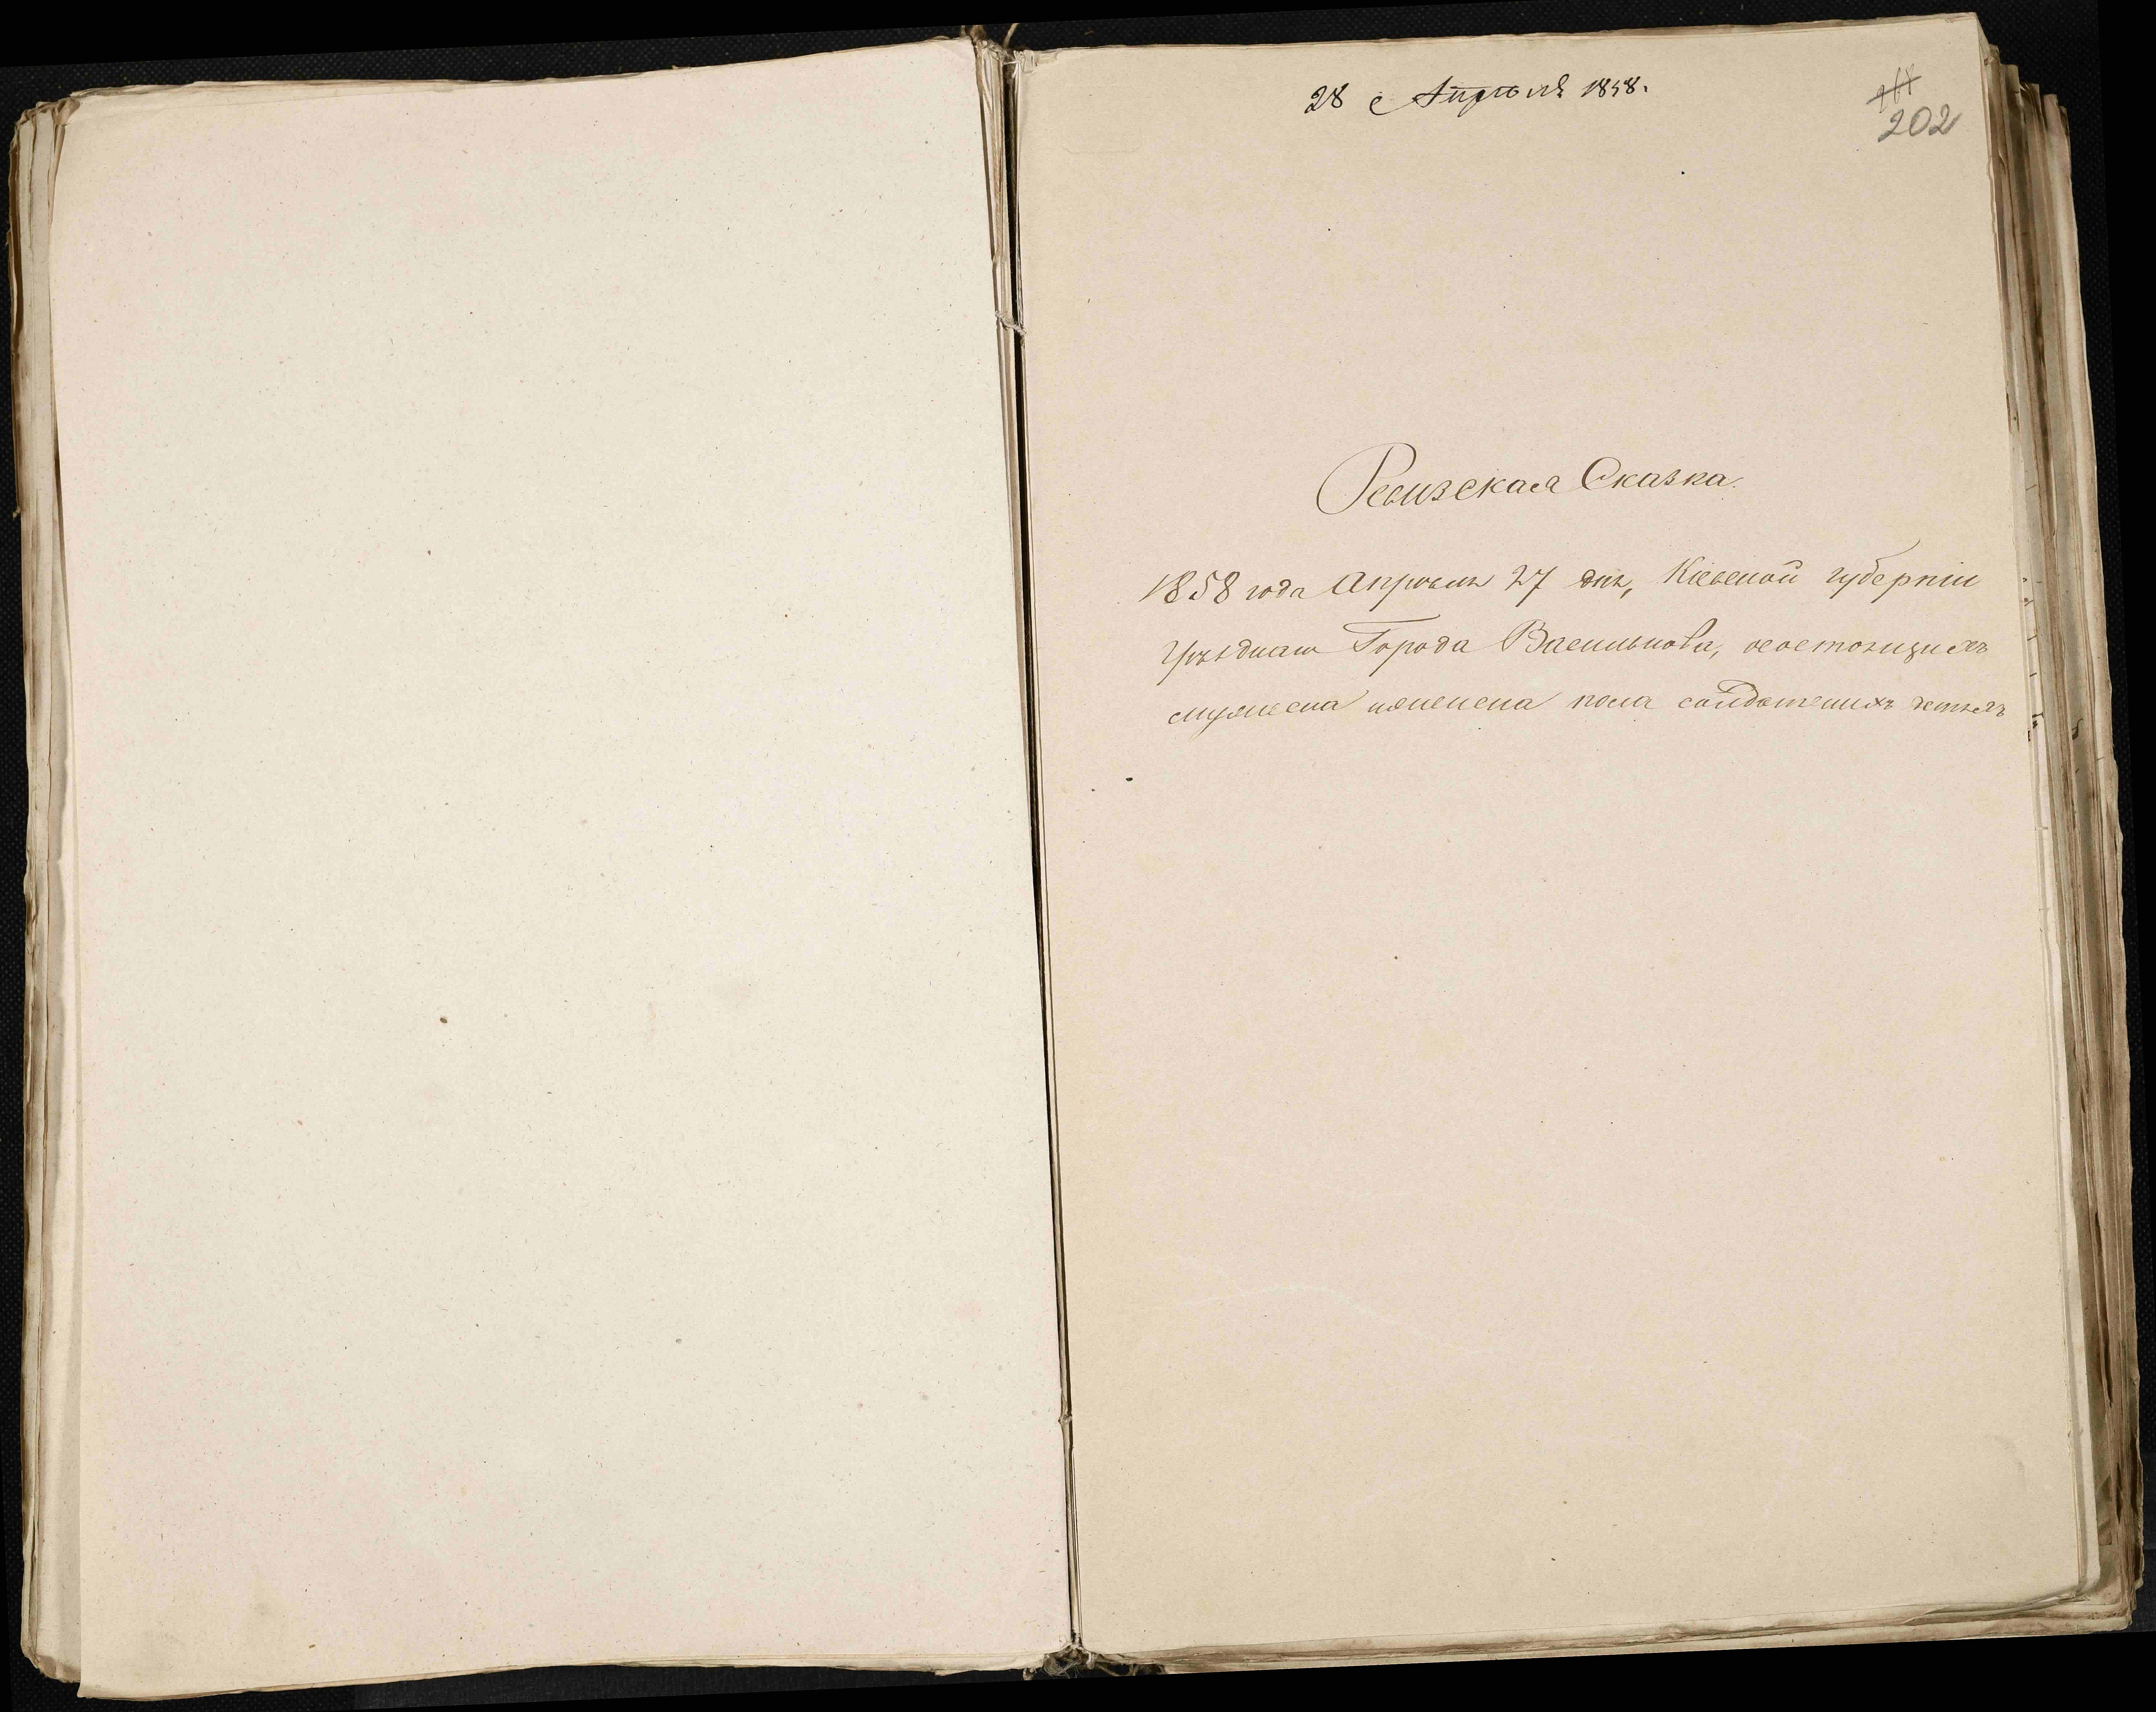 28 Апрѣля 1858.
202
Ревизская Сказка.
1858 года Апрѣля 27 дня, Кіевской губерніи
Уѣзднаго Города Василькова, о состоящихъ
мужеска и женска пола солдатскихъ дѣтяхъ